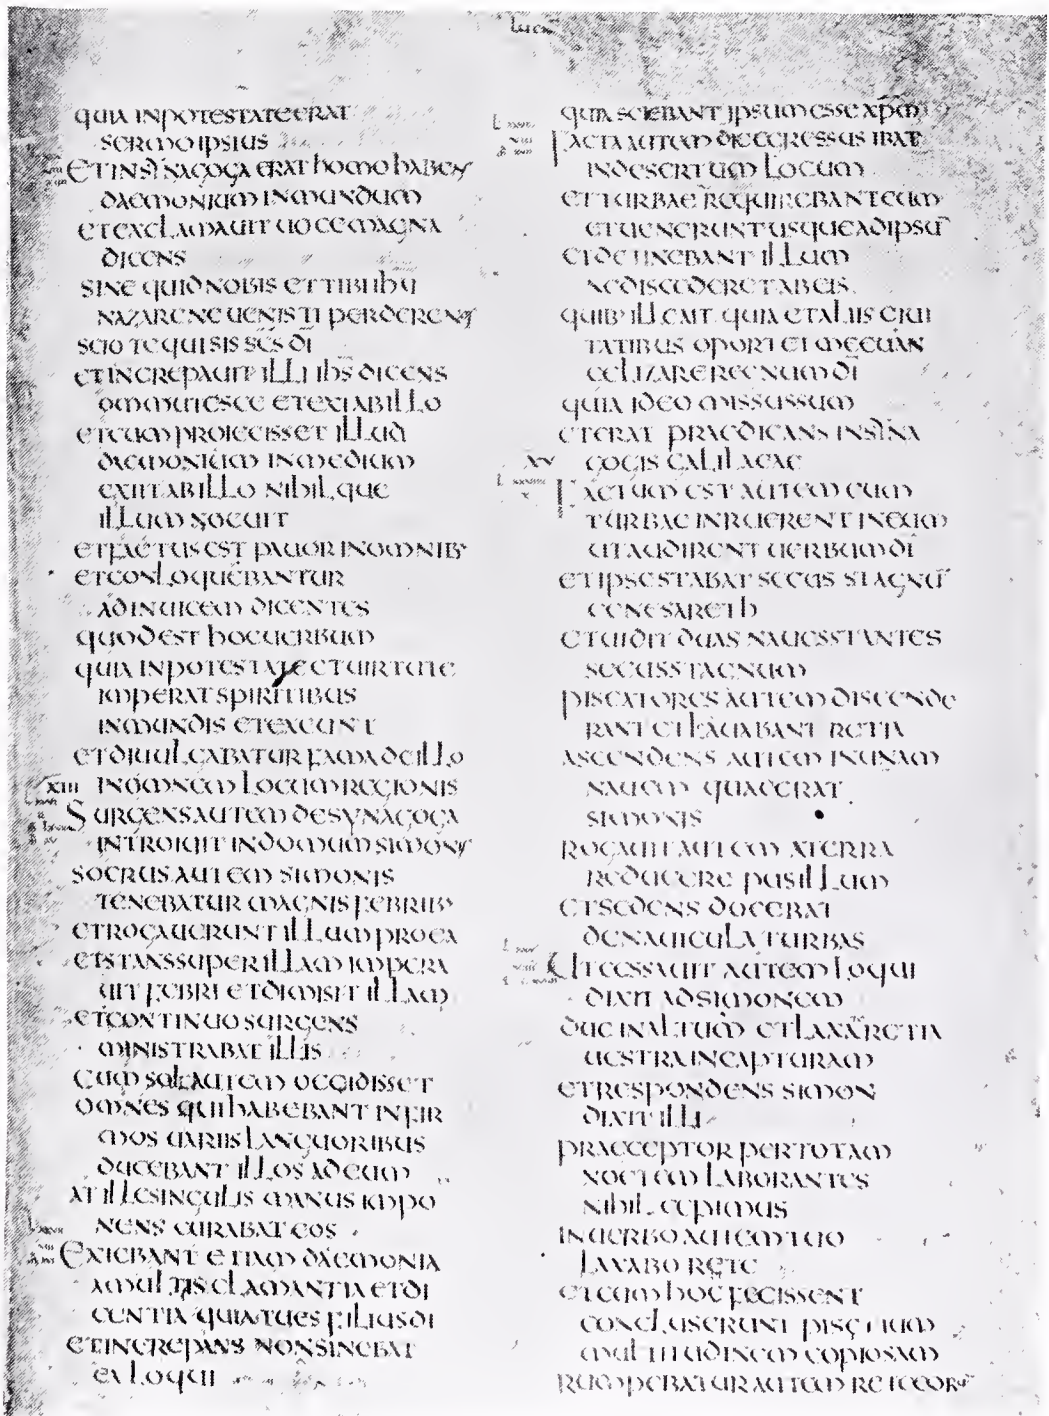 quia inpotestate erat
sermo ipsius
Et in synagoga erat homo habens
daemonium inmundum
et exclamauit uoce magna
dicens
sine quid nobis et tibi ihu
nazarene uenisti perdere nos
scio te qui sis scs di
et increpauit illi ihs dicens
ommutesce et exi ab illo
et cum proiecisset illud
daemonium in medium
exiit ab illo nihilque
illum nocuit
et factus est pauor in omnib·
et conloquebantur
ad inuicem dicentes
quod est hoc uerbum
quia in potestate et uirtute
imperat spiritibus
inmundis et exeunt
et diuulgabatur fama de illo
XIII in omnem locum regionis
Surgens autem de synagoga
introiuit in domum simonis
socrus autem simonis
tenebatur magnis febrib·
et rogauerunt illum pro ea
et stans super illam impera
uit febri et dimisit illam
et continuo surgens
ministrabat illis
cum sol autem occidisset
omnes qui habebant infir
mos uariis languoribus
ducebant illos ad eum
at ille singulis manus impo
nens curabat eos
Exiebant etiam daemonia
a multis clamantia et di
centia quia tu es filius di
et increpans non sinebat
ea loqui
quia sciebant ipsum esse xpm
Facta autem die egressus ibat
in desertum locum
et turbae requirebant eum
et uenerunt usque ad ipsū
et detinebant illum
ne discederet ab eis
quib· ille ait quia et aliis ciui
tatibus oportet me euan
gelizare regnum di
quia ideo missus sum
et erat praedicans in syna
gogis galilaeae
XV
Factum est autem cum
turbae inruerent in eum
ut audirent uerbum di
et ipse stabat secus stagnū
genesareth
et uidit duas naues stantes
secus stagnum
piscatores autem discende
rant et lauabant retia
ascendens autem in unam
nauem quae erat
simonis
rogauit autem a terra
reducere pusillum
et sedens docebat
de nauicula turbas
Ut cessauit autem loqui
dixit ad simonem
duc in altum et laxate retia
uestra in capturam
et respondens simon
dixit illi
praeceptor per totam
noctem laborantes
nihil cepimus
in uerbo autem tuo
laxabo rete
et cum hoc fecissent
concluserunt piscium
multitudinem copiosam
rumpebatur autem rete eor·